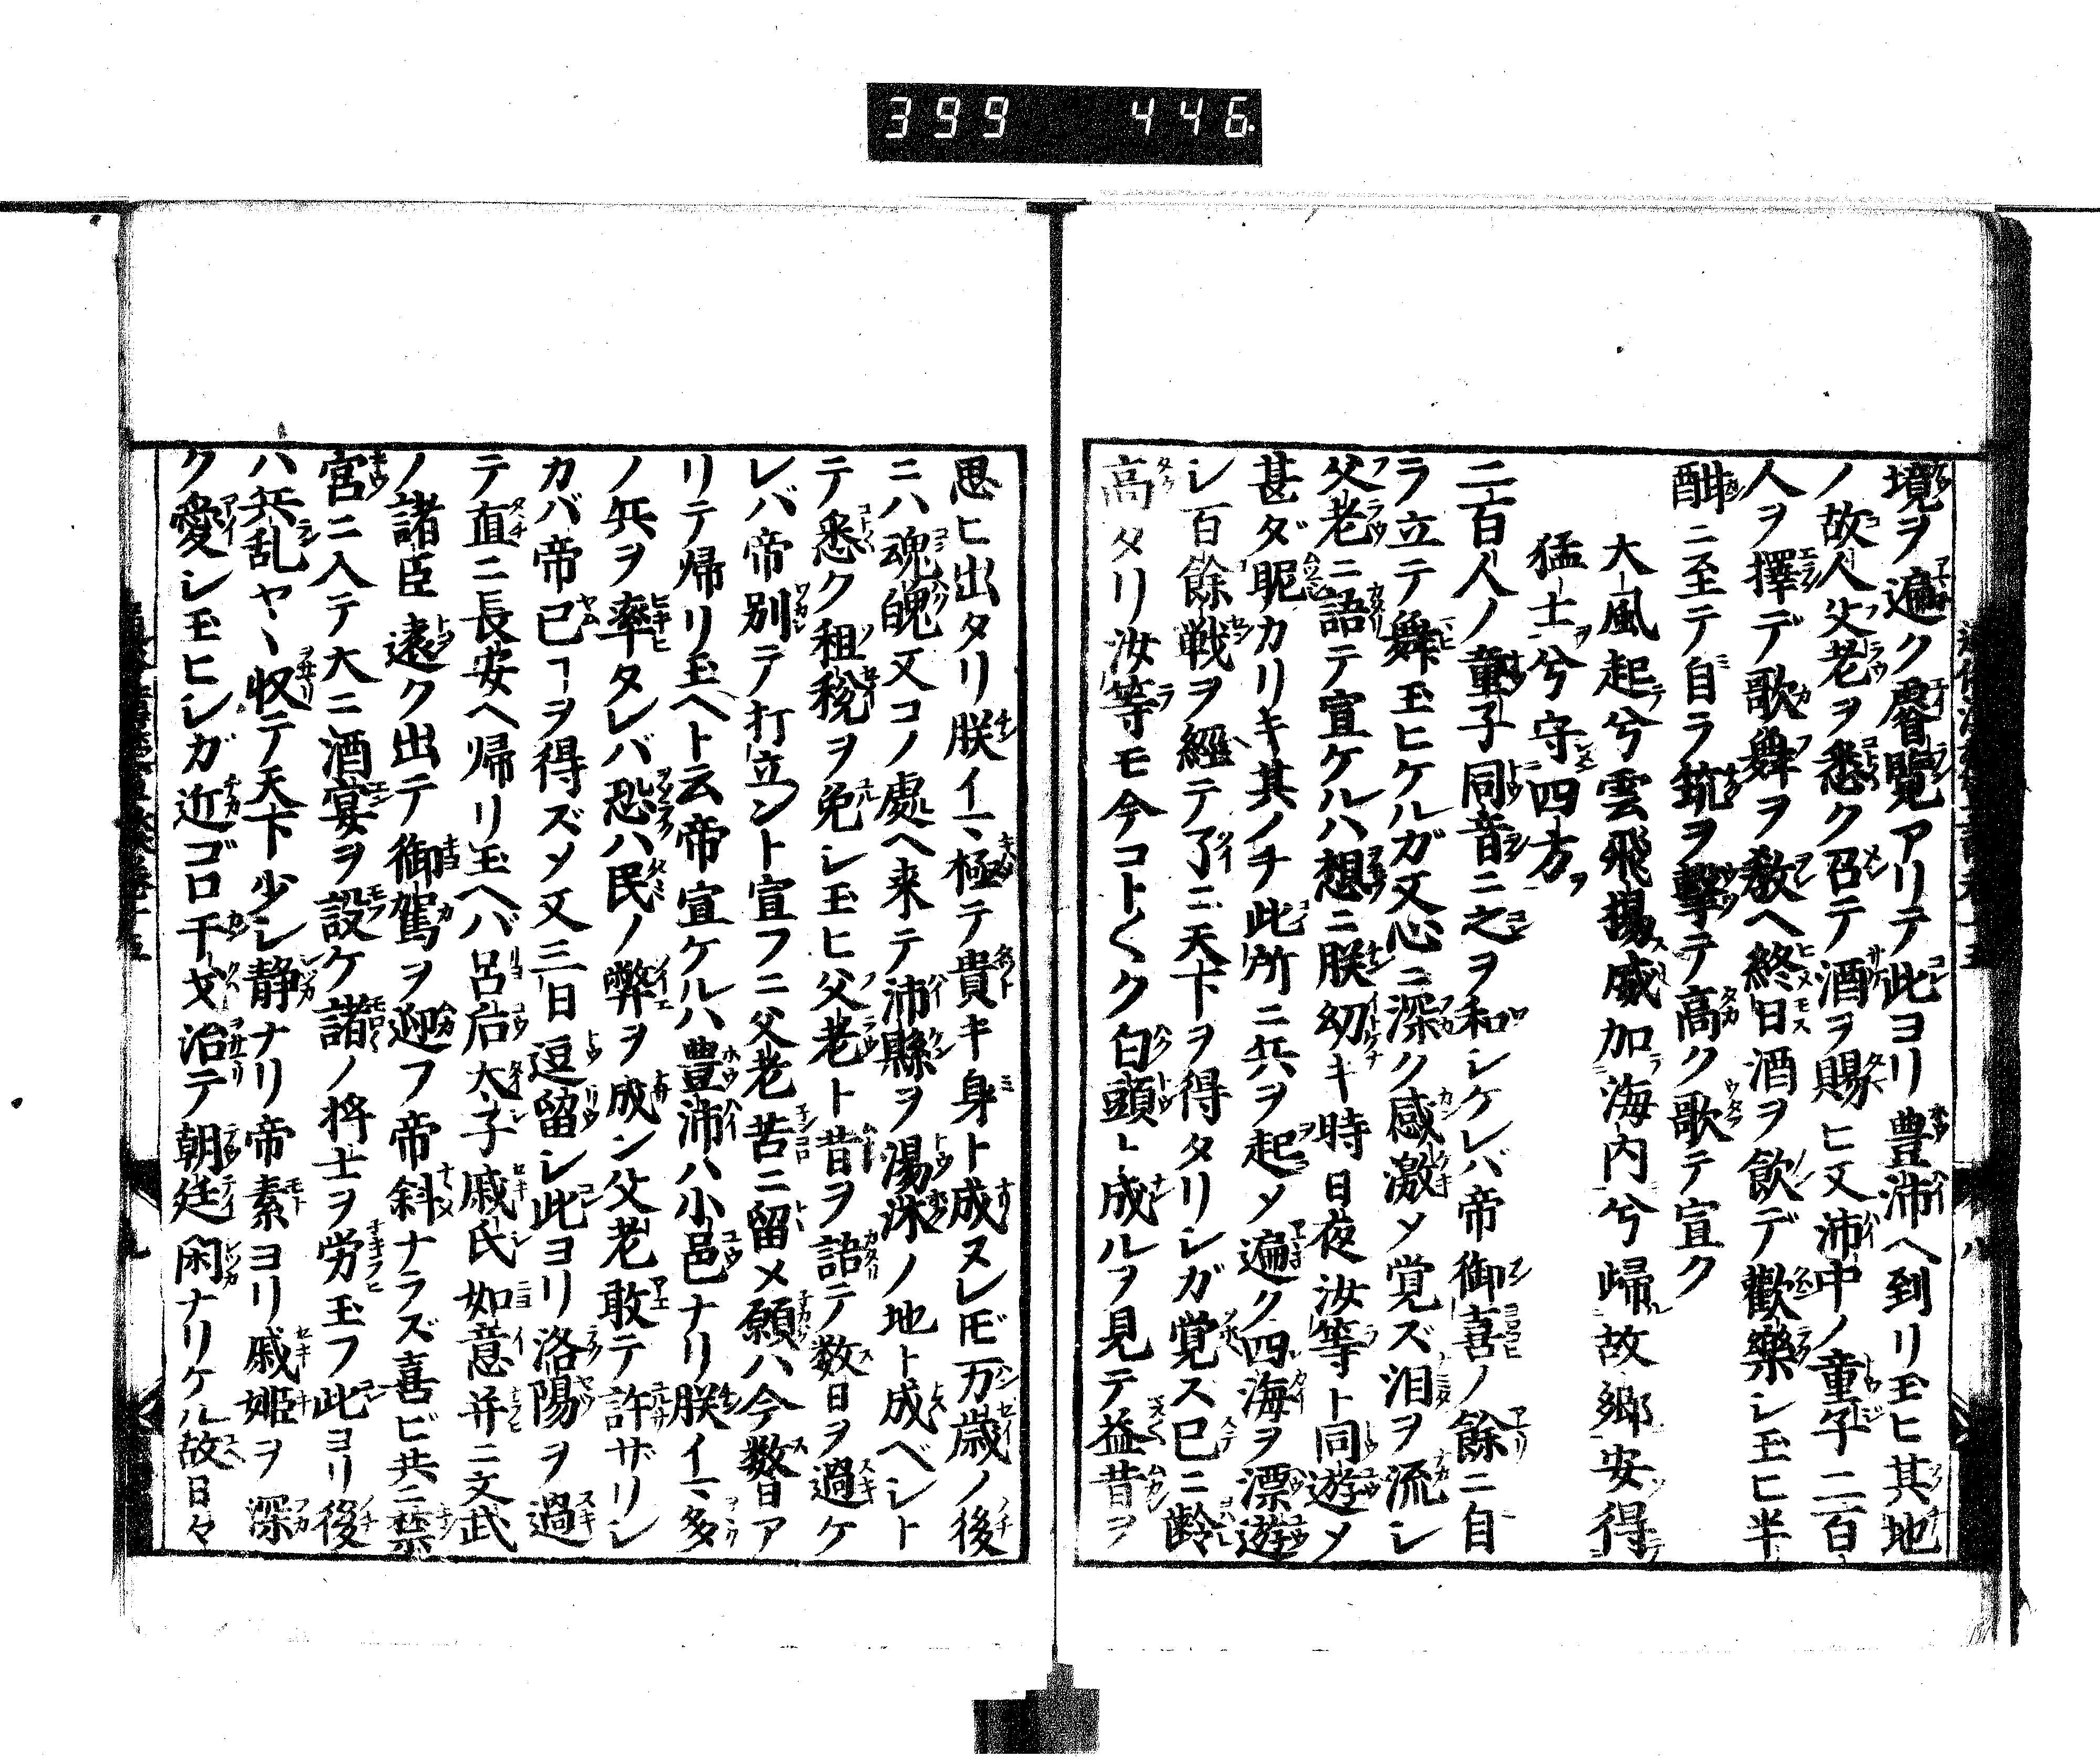 399 446
境ヲ遍ク睿覽アリテ此ヨリ豊沛ヘ到リ玉ヒ其地
ノ故人父老ヲ悉ク召テ酒ヲ賜ヒ又沛中ノ童子二百
人ヲ擇デ歌舞ヲ教ヘ終日酒ヲ飲デ歡樂シ玉ヒ半
酣ニ至テ自ラ筑ヲ擊テ高ク歌テ宣ク
大風起兮雲飛揚威加海内兮歸故郷安得
猛士兮守四方
二百人ノ童子同音ニ之ヲ和シケレバ帝御喜ノ餘ニ自
ラ立テ舞玉ヒケルガ又心ニ深ク感激メ覚ズ泪ヲ流シ
父老ニ語テ宣ケルハ想ニ朕幼キ時日夜汝等ト同遊メ
甚ダ昵カリキ其ノチ此所ニ兵ヲ起メ遍ク四海ヲ漂遊
シ百餘戦ヲ經テ了ニ天下ヲ得タリシガ覚ス已ニ齢
高タリ汝等モ今コト〱ク白頭ト成ルヲ見テ益昔ヲ
思ヒ出タリ朕イマ極テ貴キ身ト成ヌレ𪜈万歳ノ後
ニハ魂魄又コノ處ヘ来テ沛縣ヲ湯沐ノ地ト成ベシト
テ悉ク租税ヲ免シ玉ヒ父老ト昔ヲ語テ数日ヲ過ケ
レバ帝別テ打立ント宣フニ父老苦ニ留メ願ハ今数日ア
リテ帰リ玉ヘト云帝宣ケルハ豊沛ハ小邑ナリ朕イマ多
ノ兵ヲ率タレバ恐ハ民ノ弊ヲ成ン父老敢テ許ザリシ
カバ帝已ヿヲ得ズメ又三日逗留シ此ヨリ洛陽ヲ過
テ直ニ長安ヘ帰リ玉ヘバ呂后太子戚氏如意并ニ文武
ノ諸臣遠ク出テ御駕ヲ迎フ帝斜ナラズ喜ビ共ニ禁
宮ニ入テ大ニ酒宴ヲ設ケ諸ノ将士ヲ労玉フ此ヨリ後
ハ兵乱ヤヽ収テ天下少シ静ナリ帝素ヨリ戚姫ヲ深
ク愛シ玉ヒシガ近ゴロ干戈治テ朝廷閑ナリケル故日々